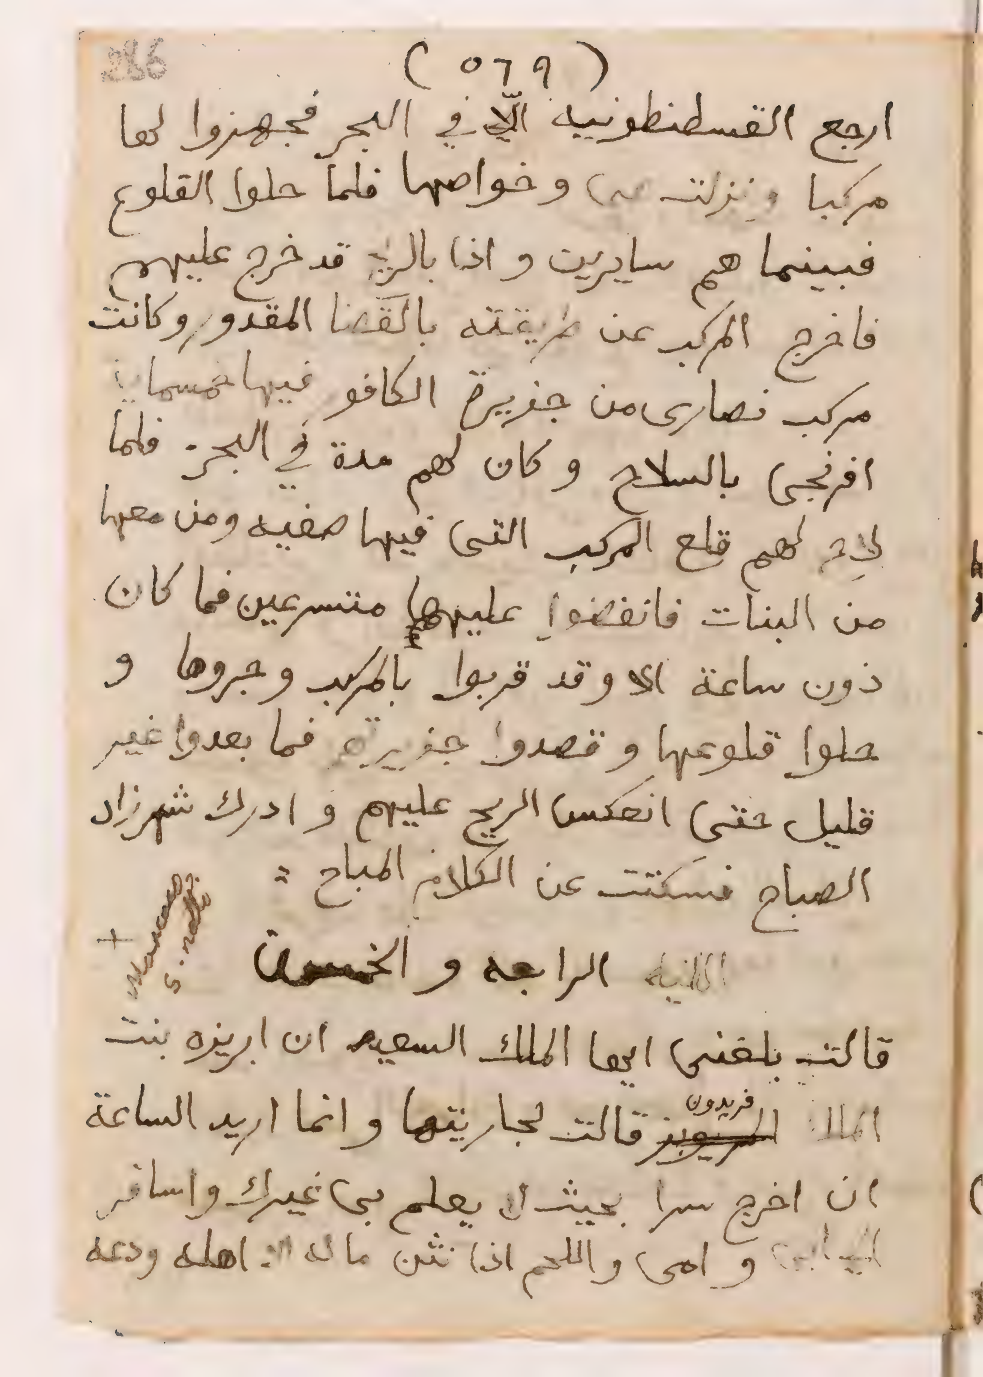 286
( ٥٦٩ )
ارجع القسطنطونيه الّا في البحر فجهزوا لها
مركبا ونزلت هى و خواصها فلما حلوا القلوع
فبينما هم سايرين و اذا بالريح قد خرج عليهم
فاخرج المركب عن طريقته بالقضا المقدور وكانت
مركب نصارى من جزيرة الكافو فيها خمسماية
افرنجى بالسلاح و كان لهم مدة في البحر. فلما
لاح لهم قلع المركب التى فيها صفيه ومن معها
من البنات فانفضوا عليها متسرعين فما كان
دون ساعة الا وقد قربوا بالمركب وجروها و
حلوا قلوعها و قصدوا جزيرتهم فما بعدوا غير
قليل حتى انعكس الريح عليهم و ادرك شهرزاد
الصباح فسكتت عن الكلام المباح :
الليله الرابعه و الخمسون
قالت بلغنى ايها الملك السعيد ان ابريزه بنت
فريدون
الملك قالت لجاريتها وانما اريد الساعة
ان اخرج سرا بحيث لا يعلم بى غيرك واسافر
الى ابى و امى واللحم اذا نتن ماله الا اهله ودعه